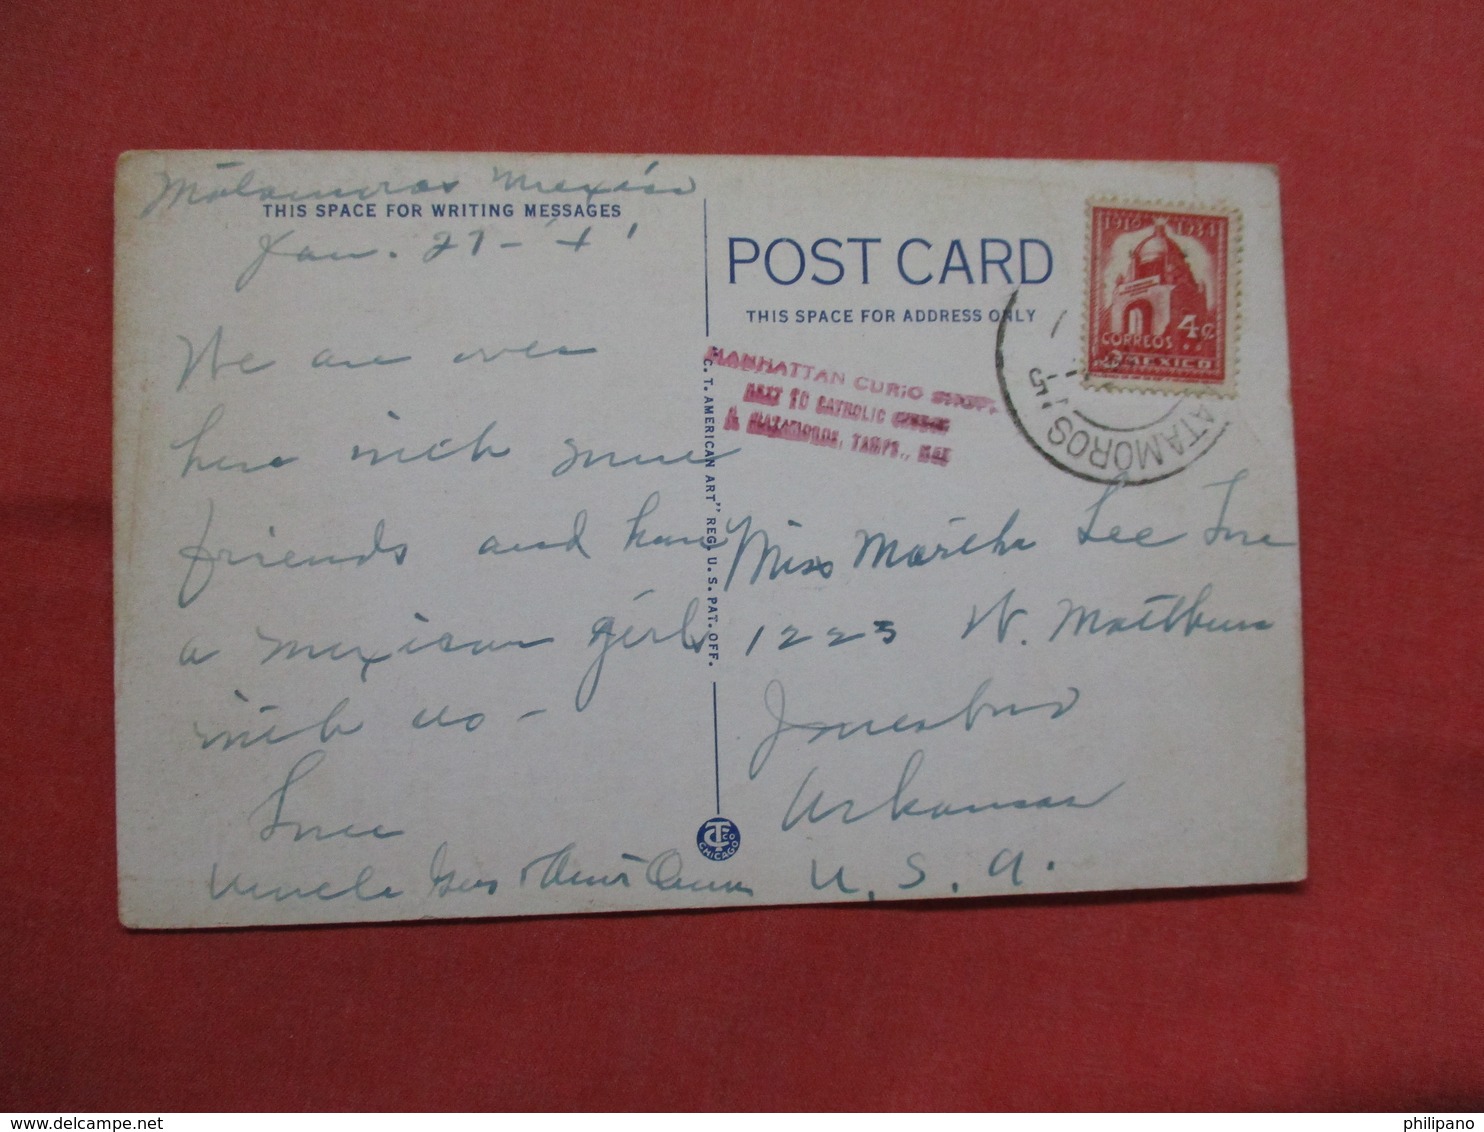 Matamoros Mexico
THIS SPACE FOR WRITING MESSAGES
Jan. 27 - '41
We are over
here with some
friends and have
a mexican girl
with us -
Love
Uncle Gus + Aunt
C. T. AMERICAN ART" REG. U. S. PAT. OFF.
CT CO CHICAGO
POST CARD
THIS SPACE FOR ADDRESS ONLY
MANHATTAN CURIO SHOP,
NEXT TO CATHOLIC CHURCH
MATAMOROS, TAMPS., MEX
1910 1934
4¢
CORREOS
MEXICO
MATAMOROS
Miss Martha Lee
1223 W. Matthews
Jonesboro
Arkansas
U. S. A.
philipano